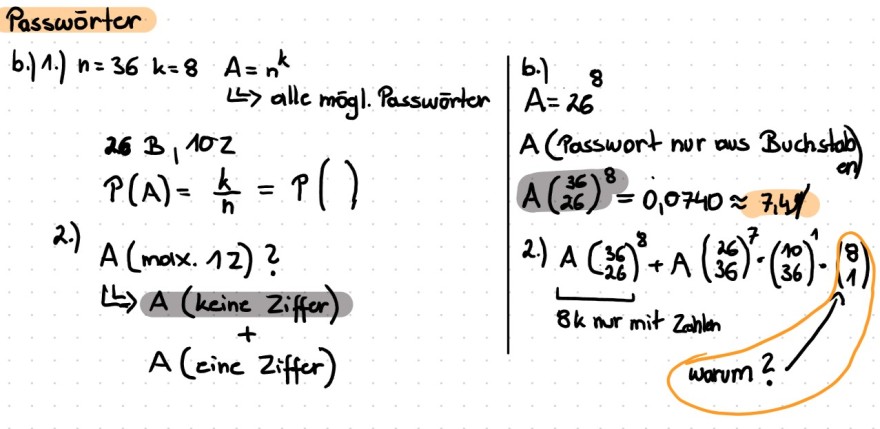 Passwörter
b.) 1.) n = 36 k = 8 A = n^k
↳ alle mögl. Passwörter
26 B, 10 Z
P(A) = k/n = P( )
2.)
A (max. 1 Z) ?
↳ A (keine Ziffer)
+
A (eine Ziffer)
b.)
A = 26^8
A (Passwort nur aus Buchstaben)
A (36 26)^8 = 0,0740 ≈ 7,4%
2.) A (36 26)^8 + A (26 36)^7 · (10 36)^1 · (8 1)
8k nur mit Zahlen
warum ?